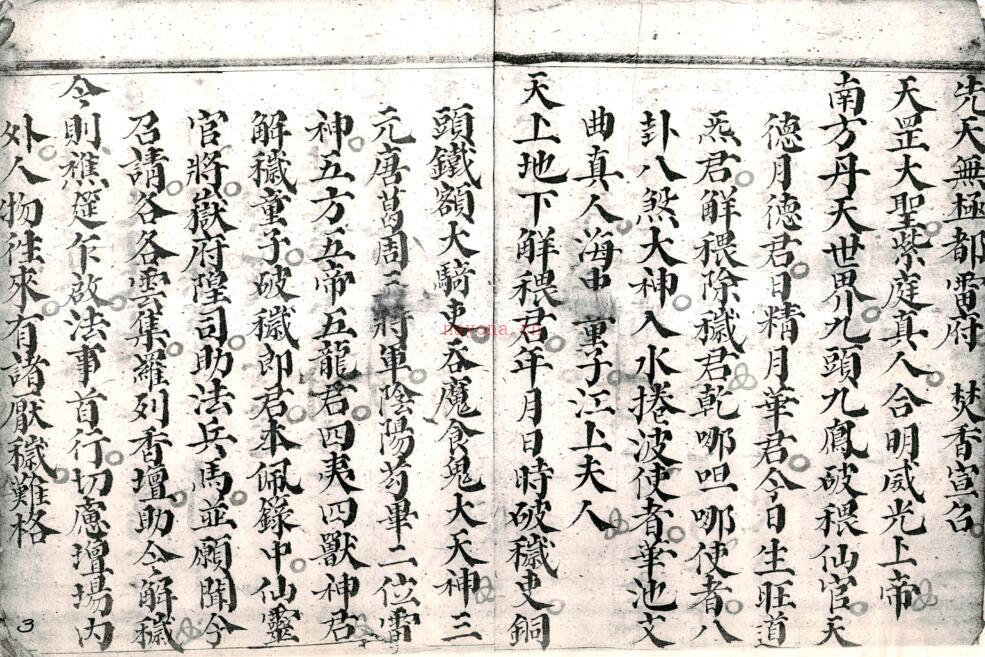 先天無極都雷府 焚香宣召
天罡大聖紫庭真人合明威光上帝
南方丹天世界九頭九鳳破穢仙官天
德月德君日精月華君今日生旺道
炁君解穢除穢君乾哪呾哪使者八
卦八煞大神入水捲波使者華池文
曲真人海中 童子江上夫人
天上地下解穢君年月日時破穢吏銅
頭鐵額大騎吏吞魔食鬼大天神三
元唐葛周三將軍陰陽芶畢二位雷
神五方五帝五龍君四夷四獸神君
解穢童子破穢郎君本佩籙中仙靈
官將嶽府隍司助法兵馬並願聞今
召請各各雲集羅列香壇助今解穢
今則醮筵乍啟法事首行切慮壇場內
外人物往來有諸厭穢難格
3